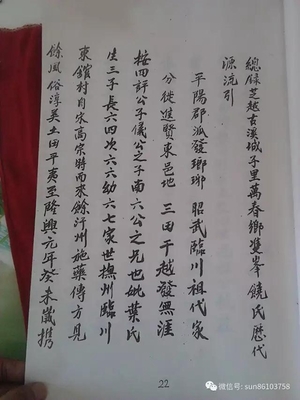 總錄芝越古溪城子里萬春鄉雙峯饒氏歷代
源流引
平陽郡派發瑯琊 昭武臨川祖代家
分徙進賢東邑地 三田千越發無涯
按四評公子儀公之子南六公之兄也妣葉氏
生三子長六四次六六幼六七家世撫州臨川
東館村自宋高宗時而來餘汗州施藥傳方見
餘風俗淳美土田平夷至隆興元年癸未歲携
22
微信号: sun86103758